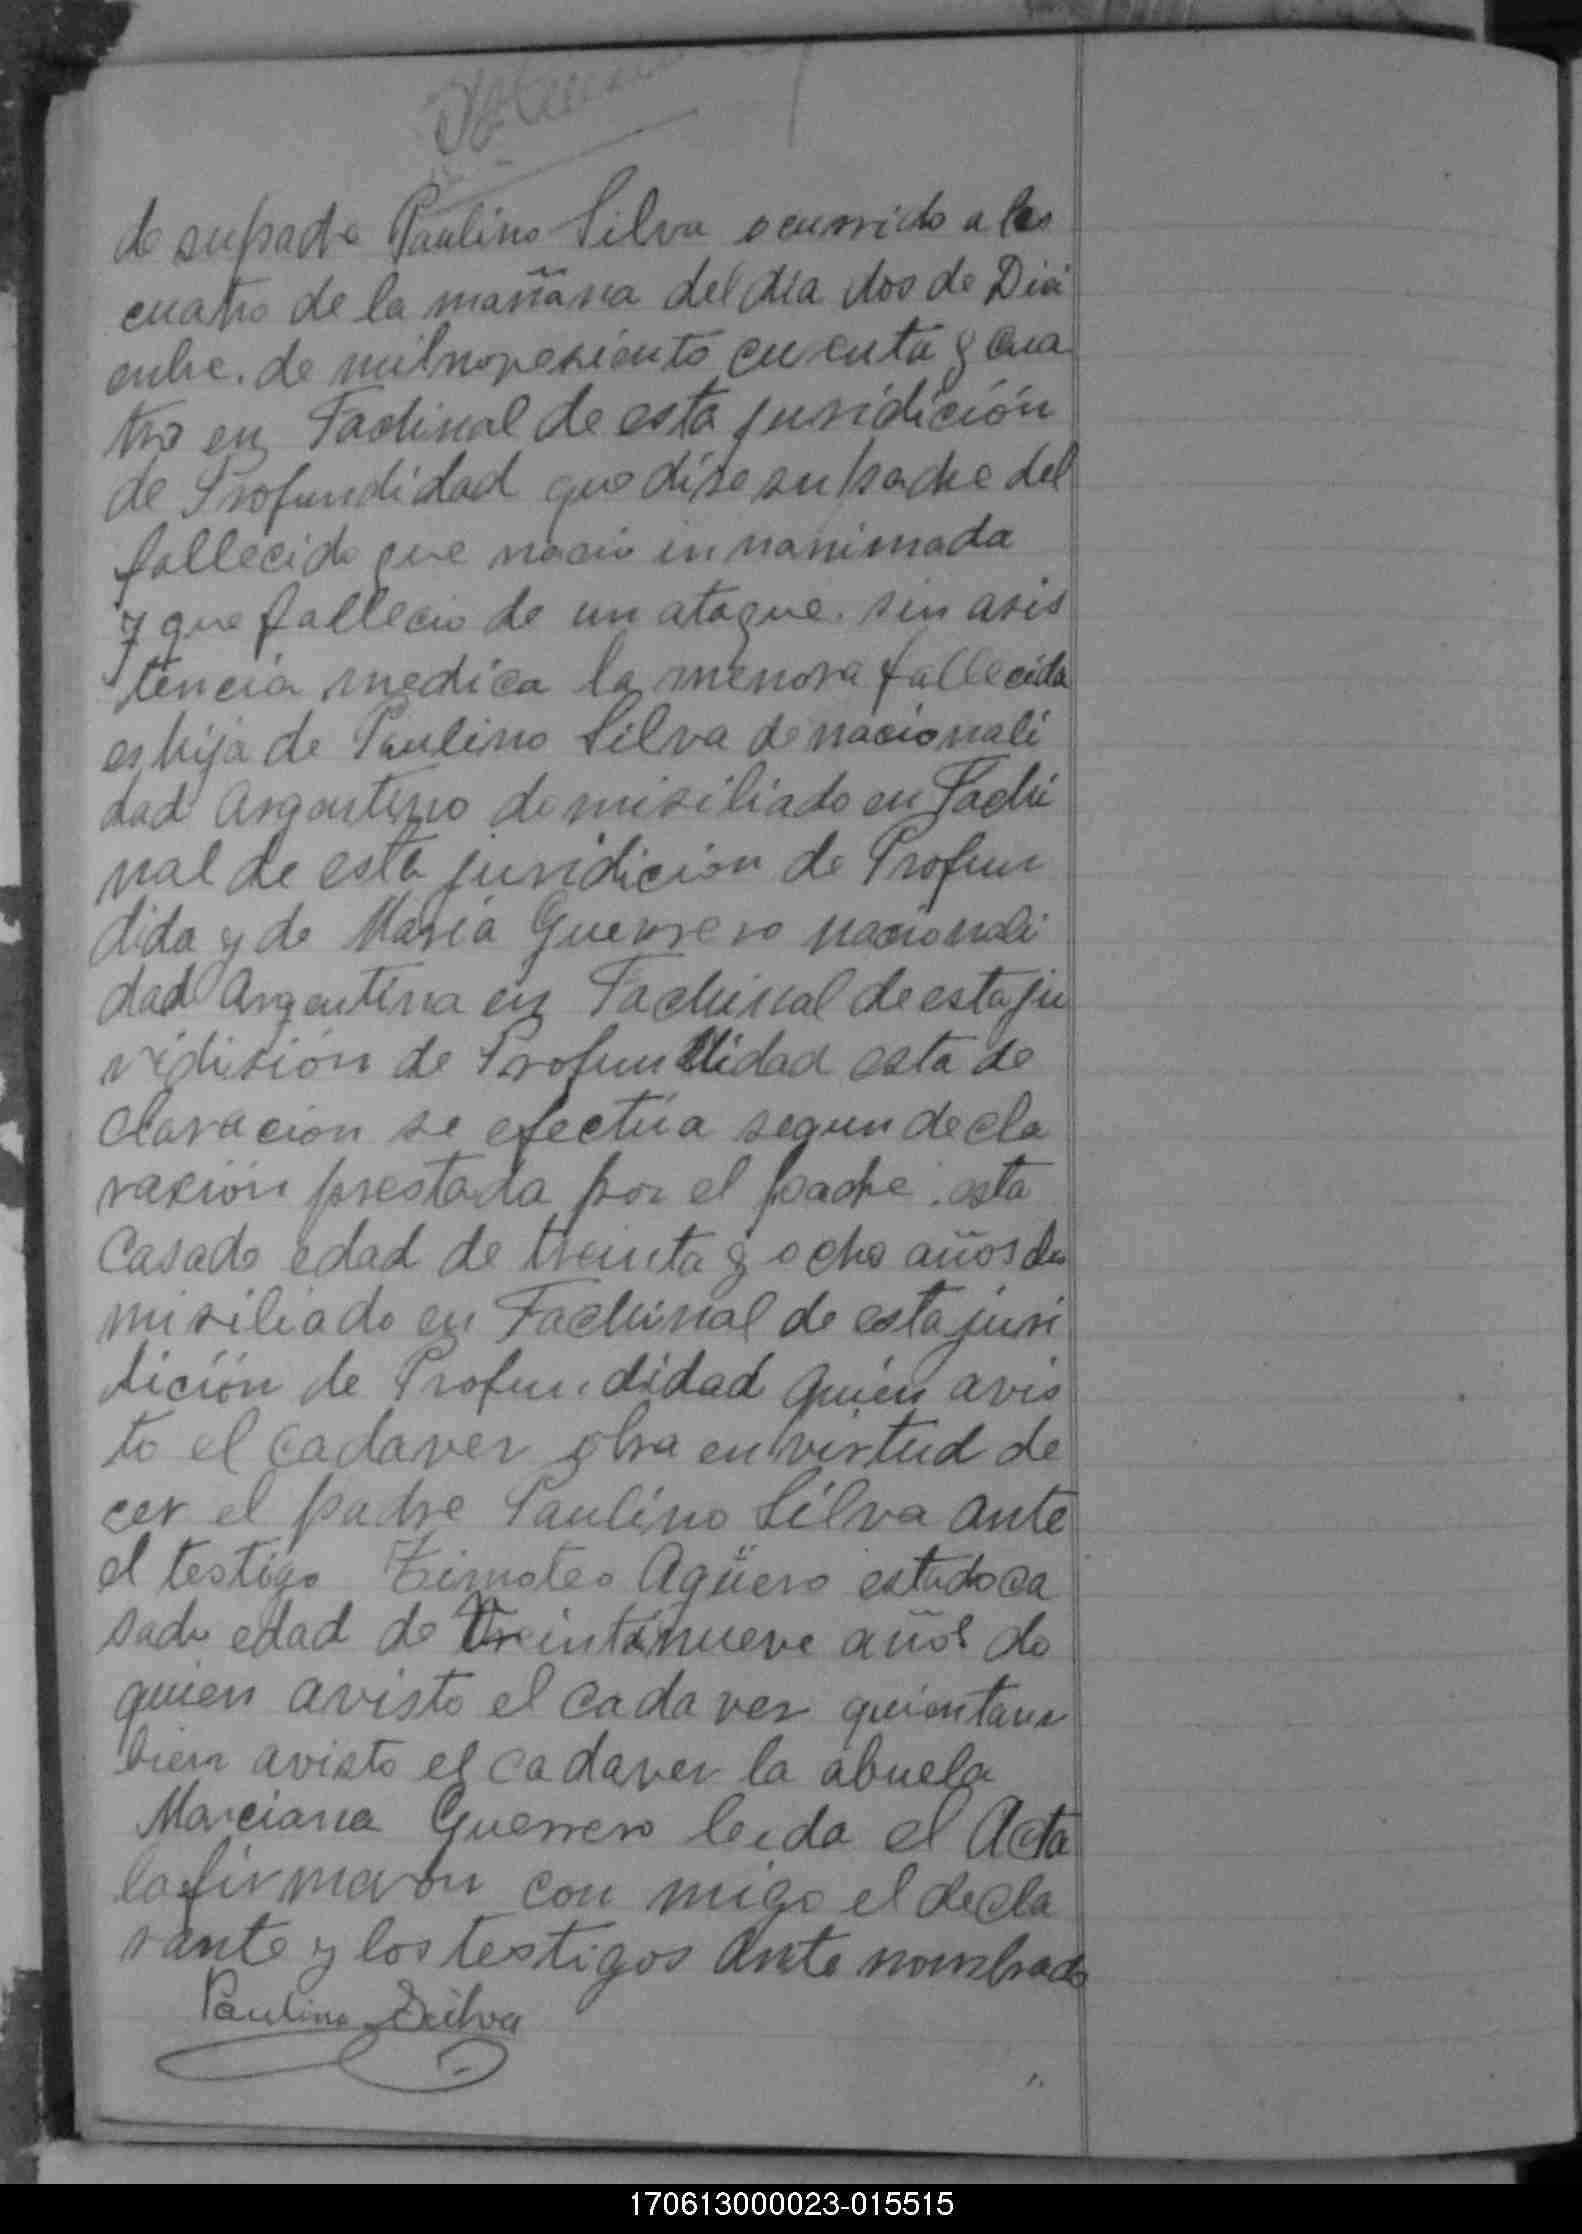 de su padre Paulino Silva ocurrido a las
cuatro de la mañana del dia dos de Dici
embre. de milnovesiento cuenta y cua
tro en Fachinal de esta juridición
de Profundidad que dise su padre del
fallecido que nacio innanimada
y que fallecio de un ataque. sin asis
tencia medica la menora fallecida
es hija de Paulino Silva de nacionali
dad Argentino domisiliado en Fachi
nal de esta juridicion de Profun
dida y de Maria Guerrero nacionali
dad Argentina en Fachinal de esta ju
ridisión de Profundidad esta de
claracion se efectúa segun decla
rasión prestada por el padre. esta
Casado edad de treinta y ocho años do
misiliado en Fachinal de esta juri
dición de Profundidad quien avis
to el cadaver obra en virtud de
cer el padre Paulino Silva ante
el testigo Timoteo Agüero estado ca
sado edad de treintinueve años de
quien avisto el cadaver quien tam
bien avisto el cadaver la abuela
Marciana Guerrero leida el Acta
la firmaron con migo el decla
rante y los testigos ante nombrado
Paulino Silva
170613000023-015515